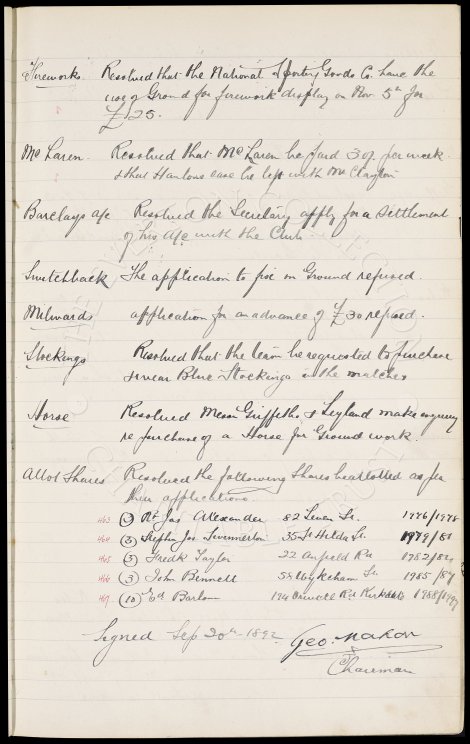 Fireworks Resolved that the National Sporting Goods Co. have the
use of Ground for firework display on Nov 5th for
£25.
McLaren. Resolved that McLaren be paid 30/ per week
& that Hanlons case be left with Mr Clayton
Barclays a/c Resolved the Secretary apply for a settlement
of his a/c with the Club
Switchback The application to fix on Ground refused.
Milwards application for an advance of £30 refused.
Stockings Resolved that the team be requested to purchase
& wear Blue Stockings in the matches
Horse Resolved Messrs Griffiths & Leyland make enquiry
re purchase of a Horse for Ground work.
Allot Shares Resolved the following Shares be allotted as per
their applications.
463 (3) Jas Alexander 82 Leven St. 1976/1978
464 (3) Stephen Jos Summerton 35 St Hilda St. 1979/81
465 (3) Fredk Taylor 22 Anfield Rd 1982/84
466 (3) John Bennett 58 Wykeham St. 1985/87
467 (10) Ed Barlow 194 Orwell Rd Kirkdale 1988/1997
Signed Sep 20th 1892 Geo. Mahon
Chairman